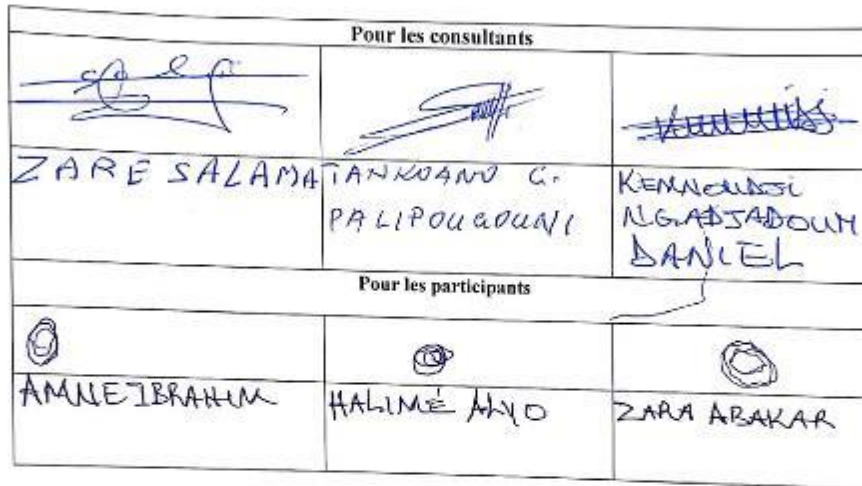 Pour les consultants
ZARE SALAMA
TANKOANO G.
PALIPOUGOUNI
KEMNOUDJI
NGADJADOUM
DANIEL
Pour les participants
AMNE IBRAHIM
HALIMÉ ALYO
ZARA ABAKAR